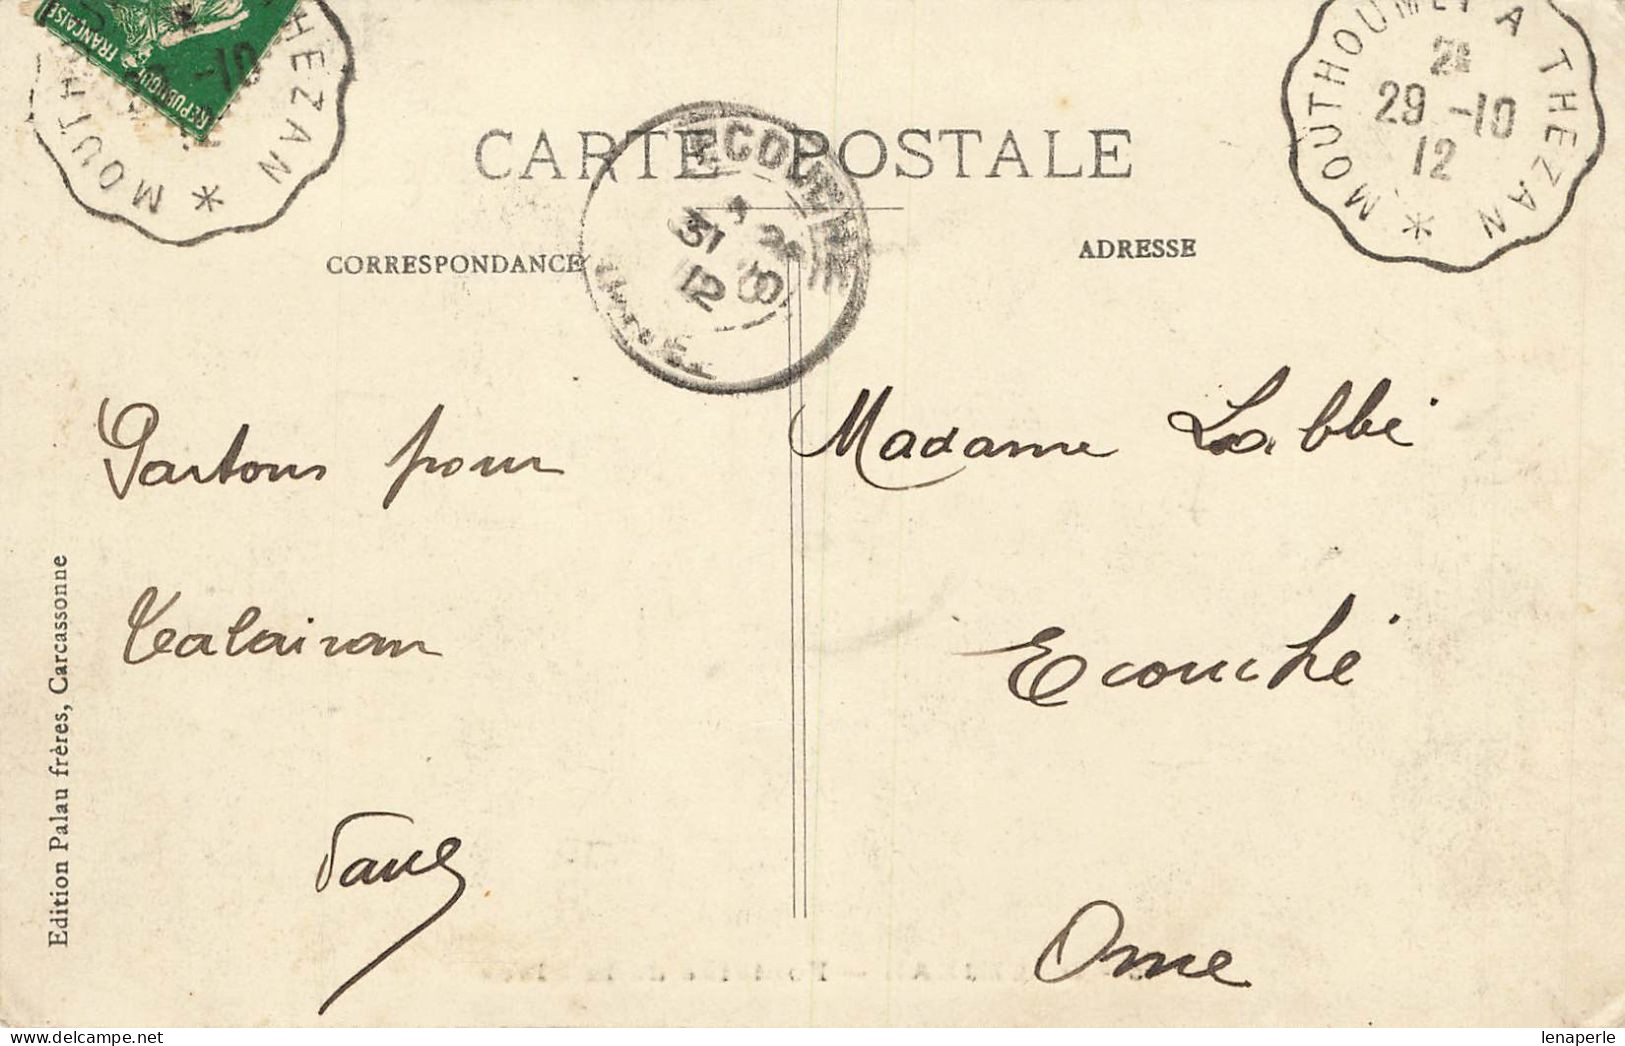 RÉPUBLIQUE FRANÇAISE
MOUTHOUMET A THEZAN
29 -10
12
CARTE POSTALE
ECOUCHE
31 10
12
CORRESPONDANCE
ADRESSE
Partons pour
Talairan
Madame Labbé
Ecouché
Orne
Edition Palau frères, Carcassonne
lenaperle